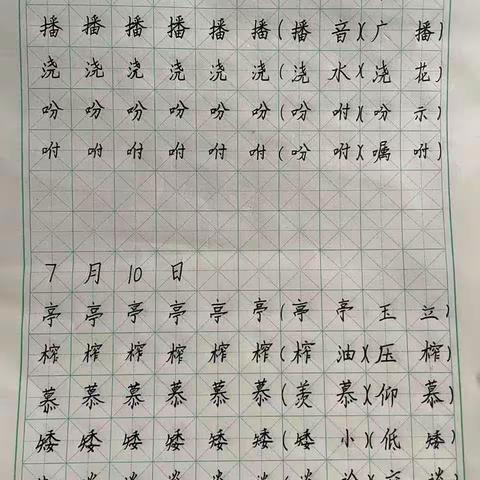 播播播播播播(播音)(广播)
浇浇浇浇浇浇(浇水)(浇花)
吩吩吩吩吩吩(吩咐)(吩示)
咐咐咐咐咐咐(吩咐)(嘱咐)
7月10日
亭亭亭亭亭亭(亭亭玉立)
榨榨榨榨榨榨(榨油)(压榨)
慕慕慕慕慕慕(羡慕)(仰慕)
矮矮矮矮矮矮(矮小)(低矮)